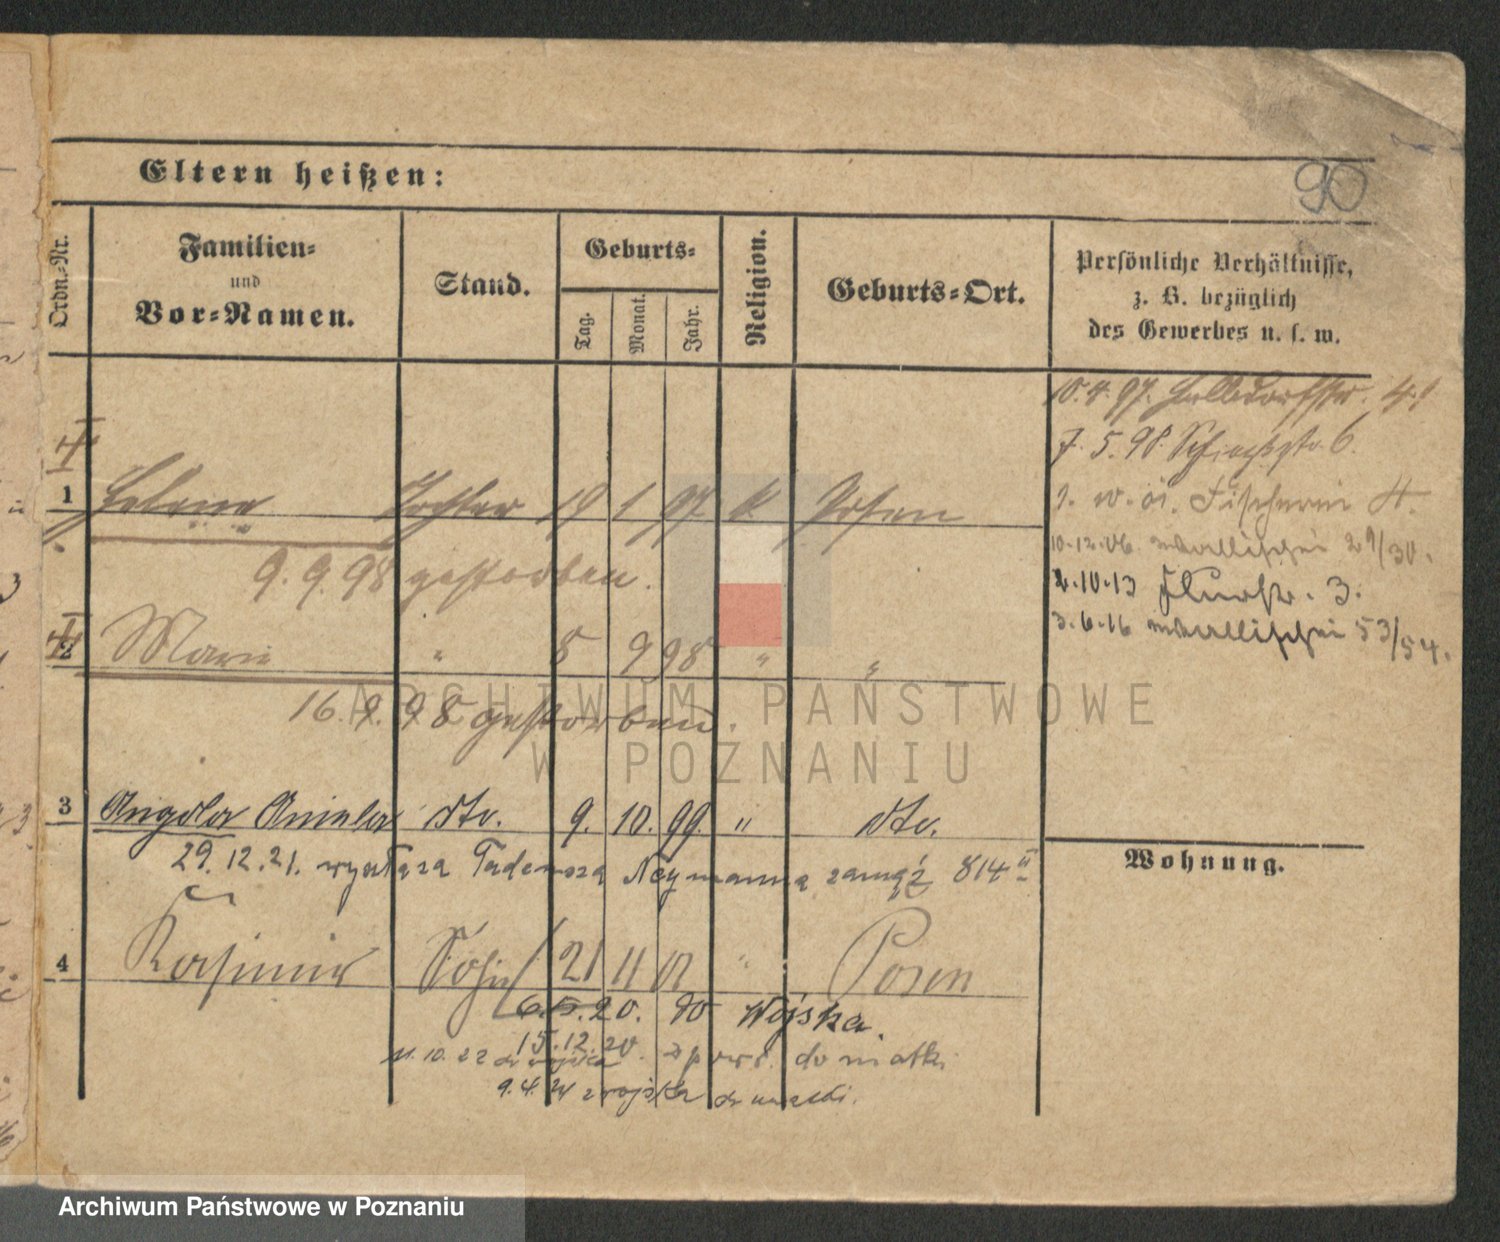 90
Eltern heißen:
Ordn.-Nr.
Familien-
und
Vor-Namen.
Stand.
Geburts-
Tag.
Monat.
Jahr.
Religion.
Geburts-Ort.
Persönliche Verhältnisse,
z. B. bezüglich
des Gewerbes u. s. w.
10.4.97. 
7.5.98. 6.
1 Helene Tochter 19 1 97 k Posen
Fischerei 4.
10.12.06. Wallischei 29/30.
9.9.98 gestorben.
2.10.13 Flurstr. 3.
3.6.16 Wallischei 53/54.
2 Marie " 8 9 98 " "
16.9.98 gestorben.
3 Aniela dto. 9. 10. 99. " dto.
29.12.21. Tadeusza Neymanna zamąż 814 III
Wohnung.
4 Kasimir Sohn 21 11 " Posen
6.5.20. do Wojska.
15.12.20. z pow. do matki
11.10.22 do wojska
9.4.24 z wojska do matki.
ARCHIWUM PAŃSTWOWE
W POZNANIU
Archiwum Państwowe w Poznaniu